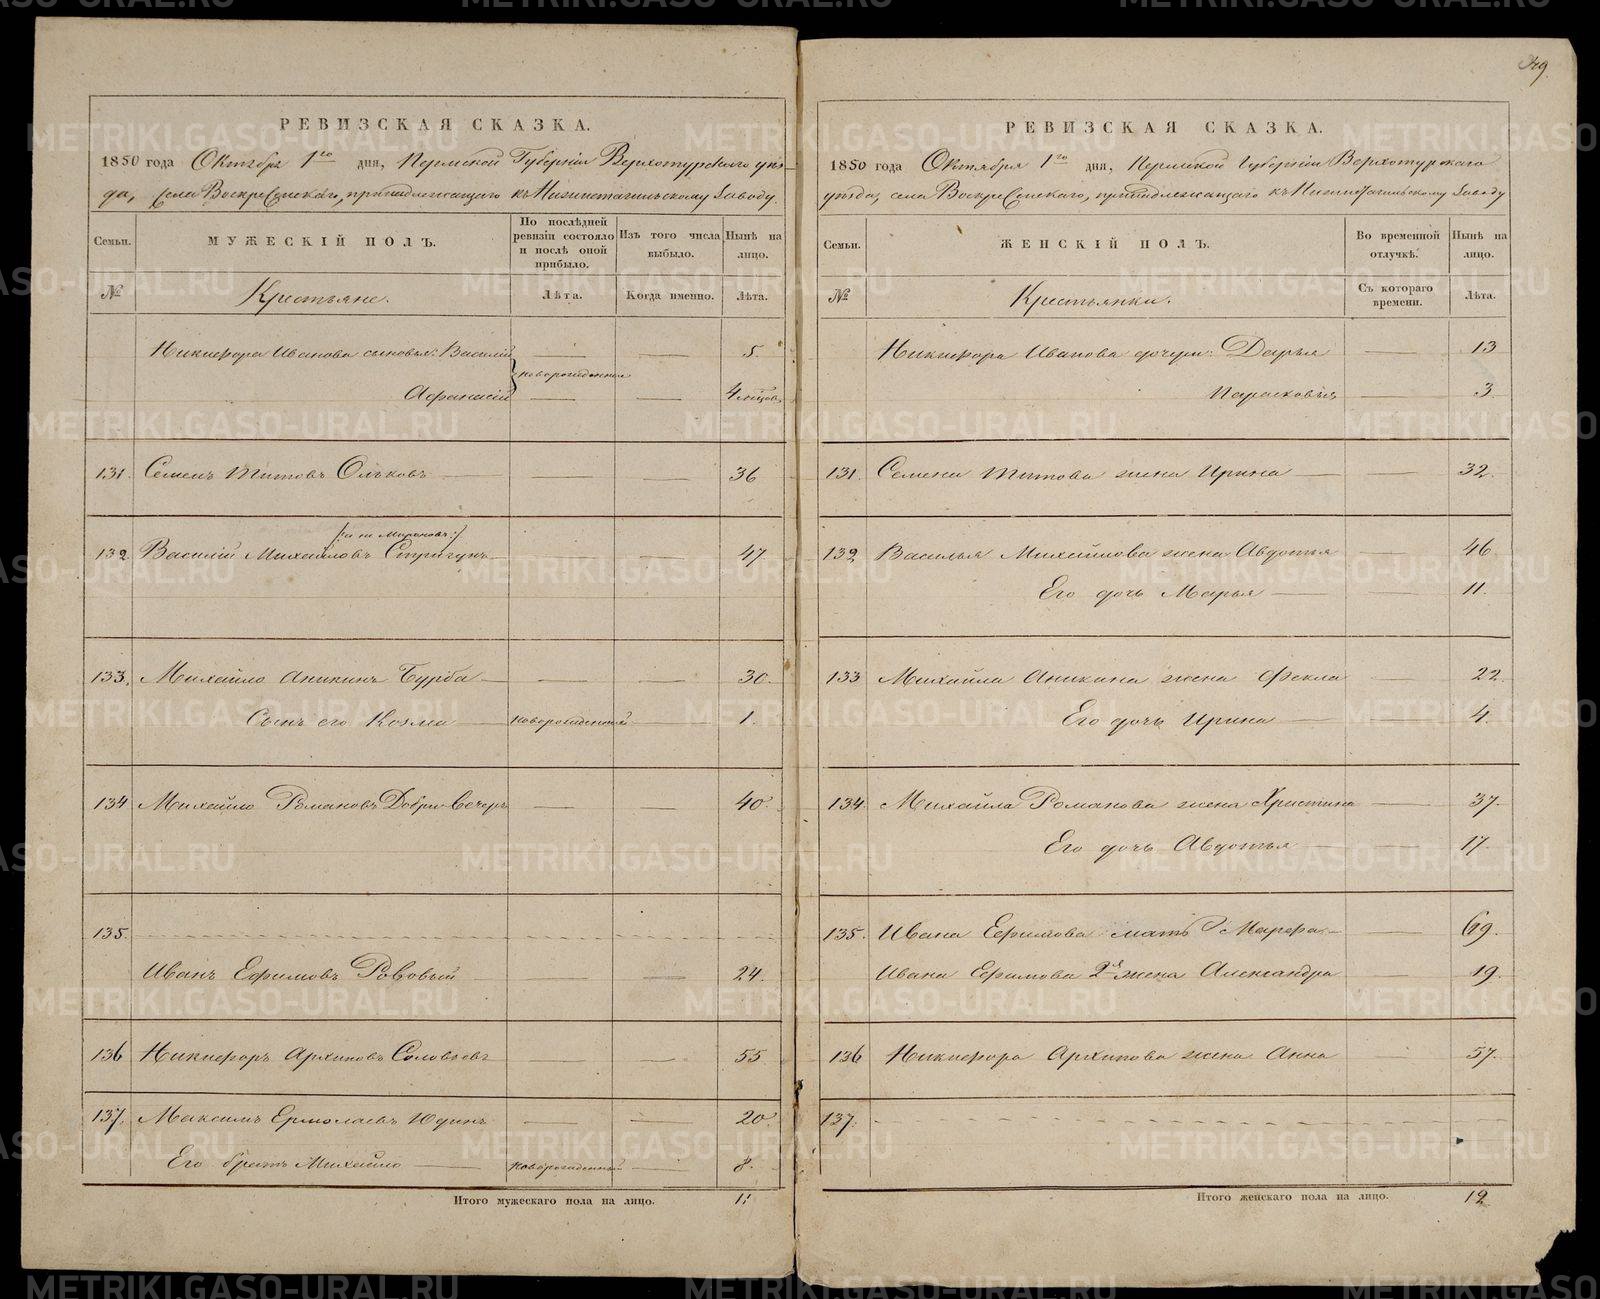 49
РЕВИЗСКАЯ СКАЗКА.
1850 года Октября 1го дня, Пермской Губернии Верхотурского уѣз-
да, села Воскресенскаго, принадлежащаго къ Нижнетагильскому Заводу.
Семьи. МУЖЕСКІЙ ПОЛЪ. По послѣдней ревизіи состояло и послѣ оной прибыло. Изъ того числа выбыло. Нынѣ на лицо.
№ Крестьяне. Лѣта. Когда именно. Лѣта.
Никифора Иванова сыновья: Василій — — 5.
новорожденныя
Афанасій — — 4 мѣсяцов.
131. Семенъ Титовъ Ольковъ — — — 36
/:а не Мироновъ:/
132. Василій Михайловъ Стригунъ 47
133. Михайло Аникинъ Бурба — — — 30.
Сынъ его Козма — новорожденный — 1.
134 Михайло Романовъ Добри-Вечеръ — — 40.
135.
Иванъ Ефимовъ Роговый — — 24.
136 Никифоръ Архиповъ Соловьевъ — — 55
137. Максимъ Ермолаевъ Юдинъ — — 20
Его братъ Михайло — новорожденный — 8.
Итого мужескаго пола на лицо. 11
РЕВИЗСКАЯ СКАЗКА.
1850 года Октября 1го дня, Пермской Губерніи Верхотурскаго
уѣзда, села Воскресенскаго, принадлежащаго къ Нижнетагильскому Заводу
Семьи. ЖЕНСКІЙ ПОЛЪ. Во временной отлучкѣ. Нынѣ на лицо.
№ Крестьянки. Съ котораго времени. Лѣта.
Никифора Иванова дочери: Дарья — 13
Парасковья — 3.
131. Семена Титова жена Ирина — — 32.
132 Василья Михайлова жена Авдотья — 46
Его дочь Марья — — 11.
133 Михайла Аникина жена Фекла — 22.
Его дочь Ирина — — 4.
134. Михайла Романова жена Христина — 37.
Его дочь Авдотья — — 17.
135. Ивана Ефимова мать Марфа — — 69.
Ивана Ефимова 2я жена Александра — 19.
136 Никифора Архипова жена Анна — 57.
137.
Итого женскаго пола на лицо. 12
METRIKI.GASO-URAL.RU